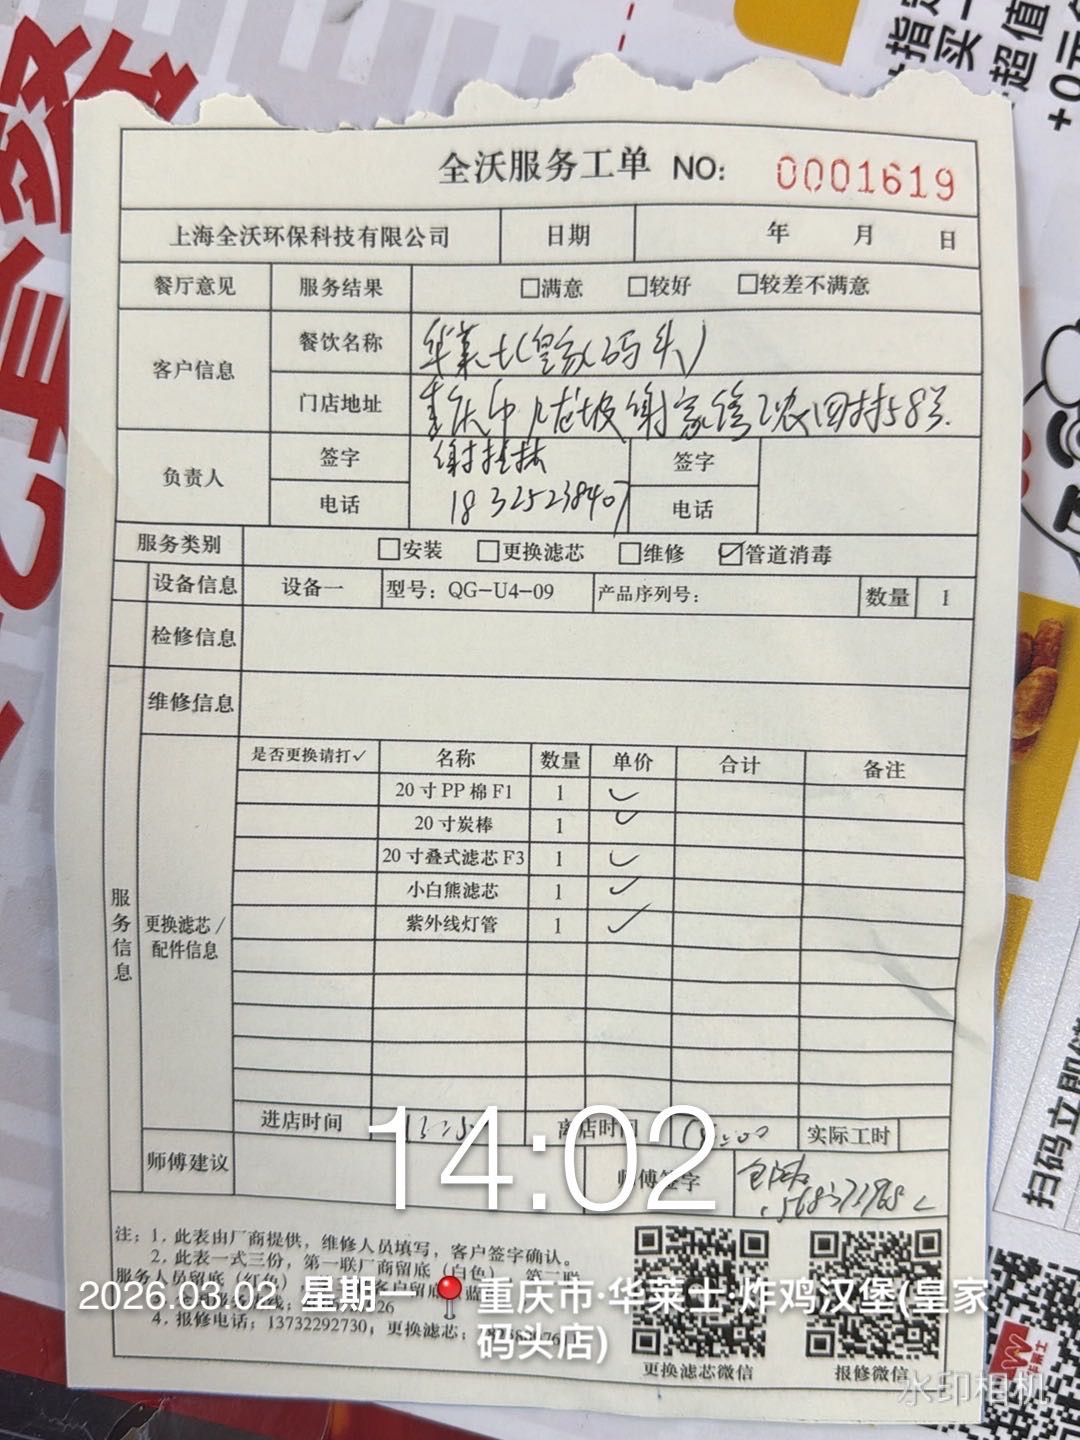 全沃服务工单 NO: 0001619
上海全沃环保科技有限公司 日期 年 月 日
餐厅意见 服务结果 □满意 □较好 □较差不满意
客户信息 餐饮名称 华莱士(皇家码头)
门店地址 重庆市九龙坡谢家湾工农四村58号
负责人 签字 签字
电话 18325238407 电话
服务类别 □安装 □更换滤芯 □维修 ☑管道消毒
设备信息 设备一 型号: QG-U4-09 产品序列号: 数量 1
检修信息
维修信息
服务信息
更换滤芯/配件信息
是否更换请打✓ 名称 数量 单价 合计 备注
20寸PP棉F1 1 ✓
20寸炭棒 1 ✓
20寸叠式滤芯F3 1 ✓
小白熊滤芯 1 ✓
紫外线灯管 1 ✓
进店时间 离店时间 实际工时
14:02
师傅建议 师傅签字
注: 1. 此表由厂商提供, 维修人员填写, 客户签字确认。
2. 此表一式三份, 第一联厂商留底(白色)
服务人员留底(红色)
4. 报修电话: 13732292730, 更换滤芯:
2026.03.02 星期一 重庆市·华莱士·炸鸡汉堡(皇家
码头店)
更换滤芯微信 报修微信
水印相机
+指定
买一
超值
+0元
扫码立即
华莱士